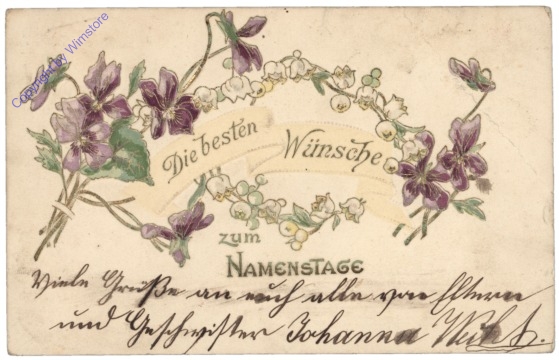 Copyright by Wimstore
Die besten Wünsche
zum
NAMENSTAGE
Viele Grüße an euch alle von Eltern
und Geschwister Johanna